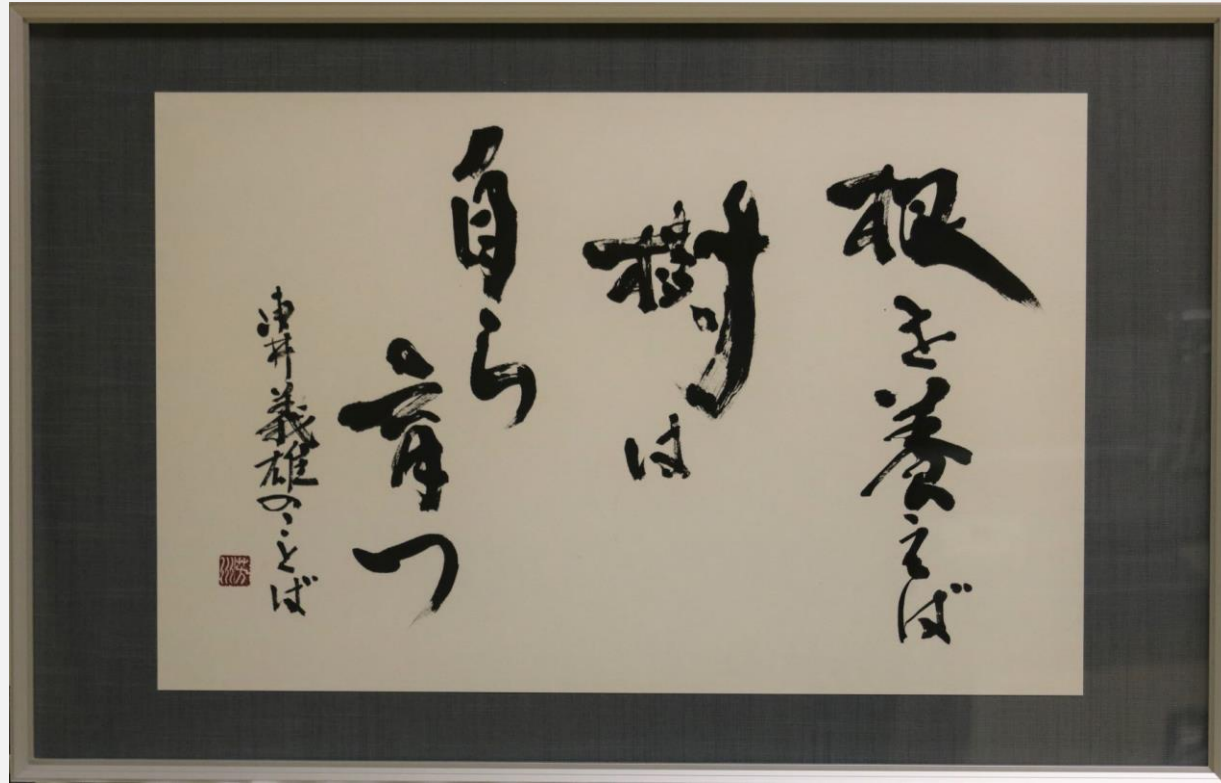 根を養えば
樹は
自ら
育つ
東井義雄のことば